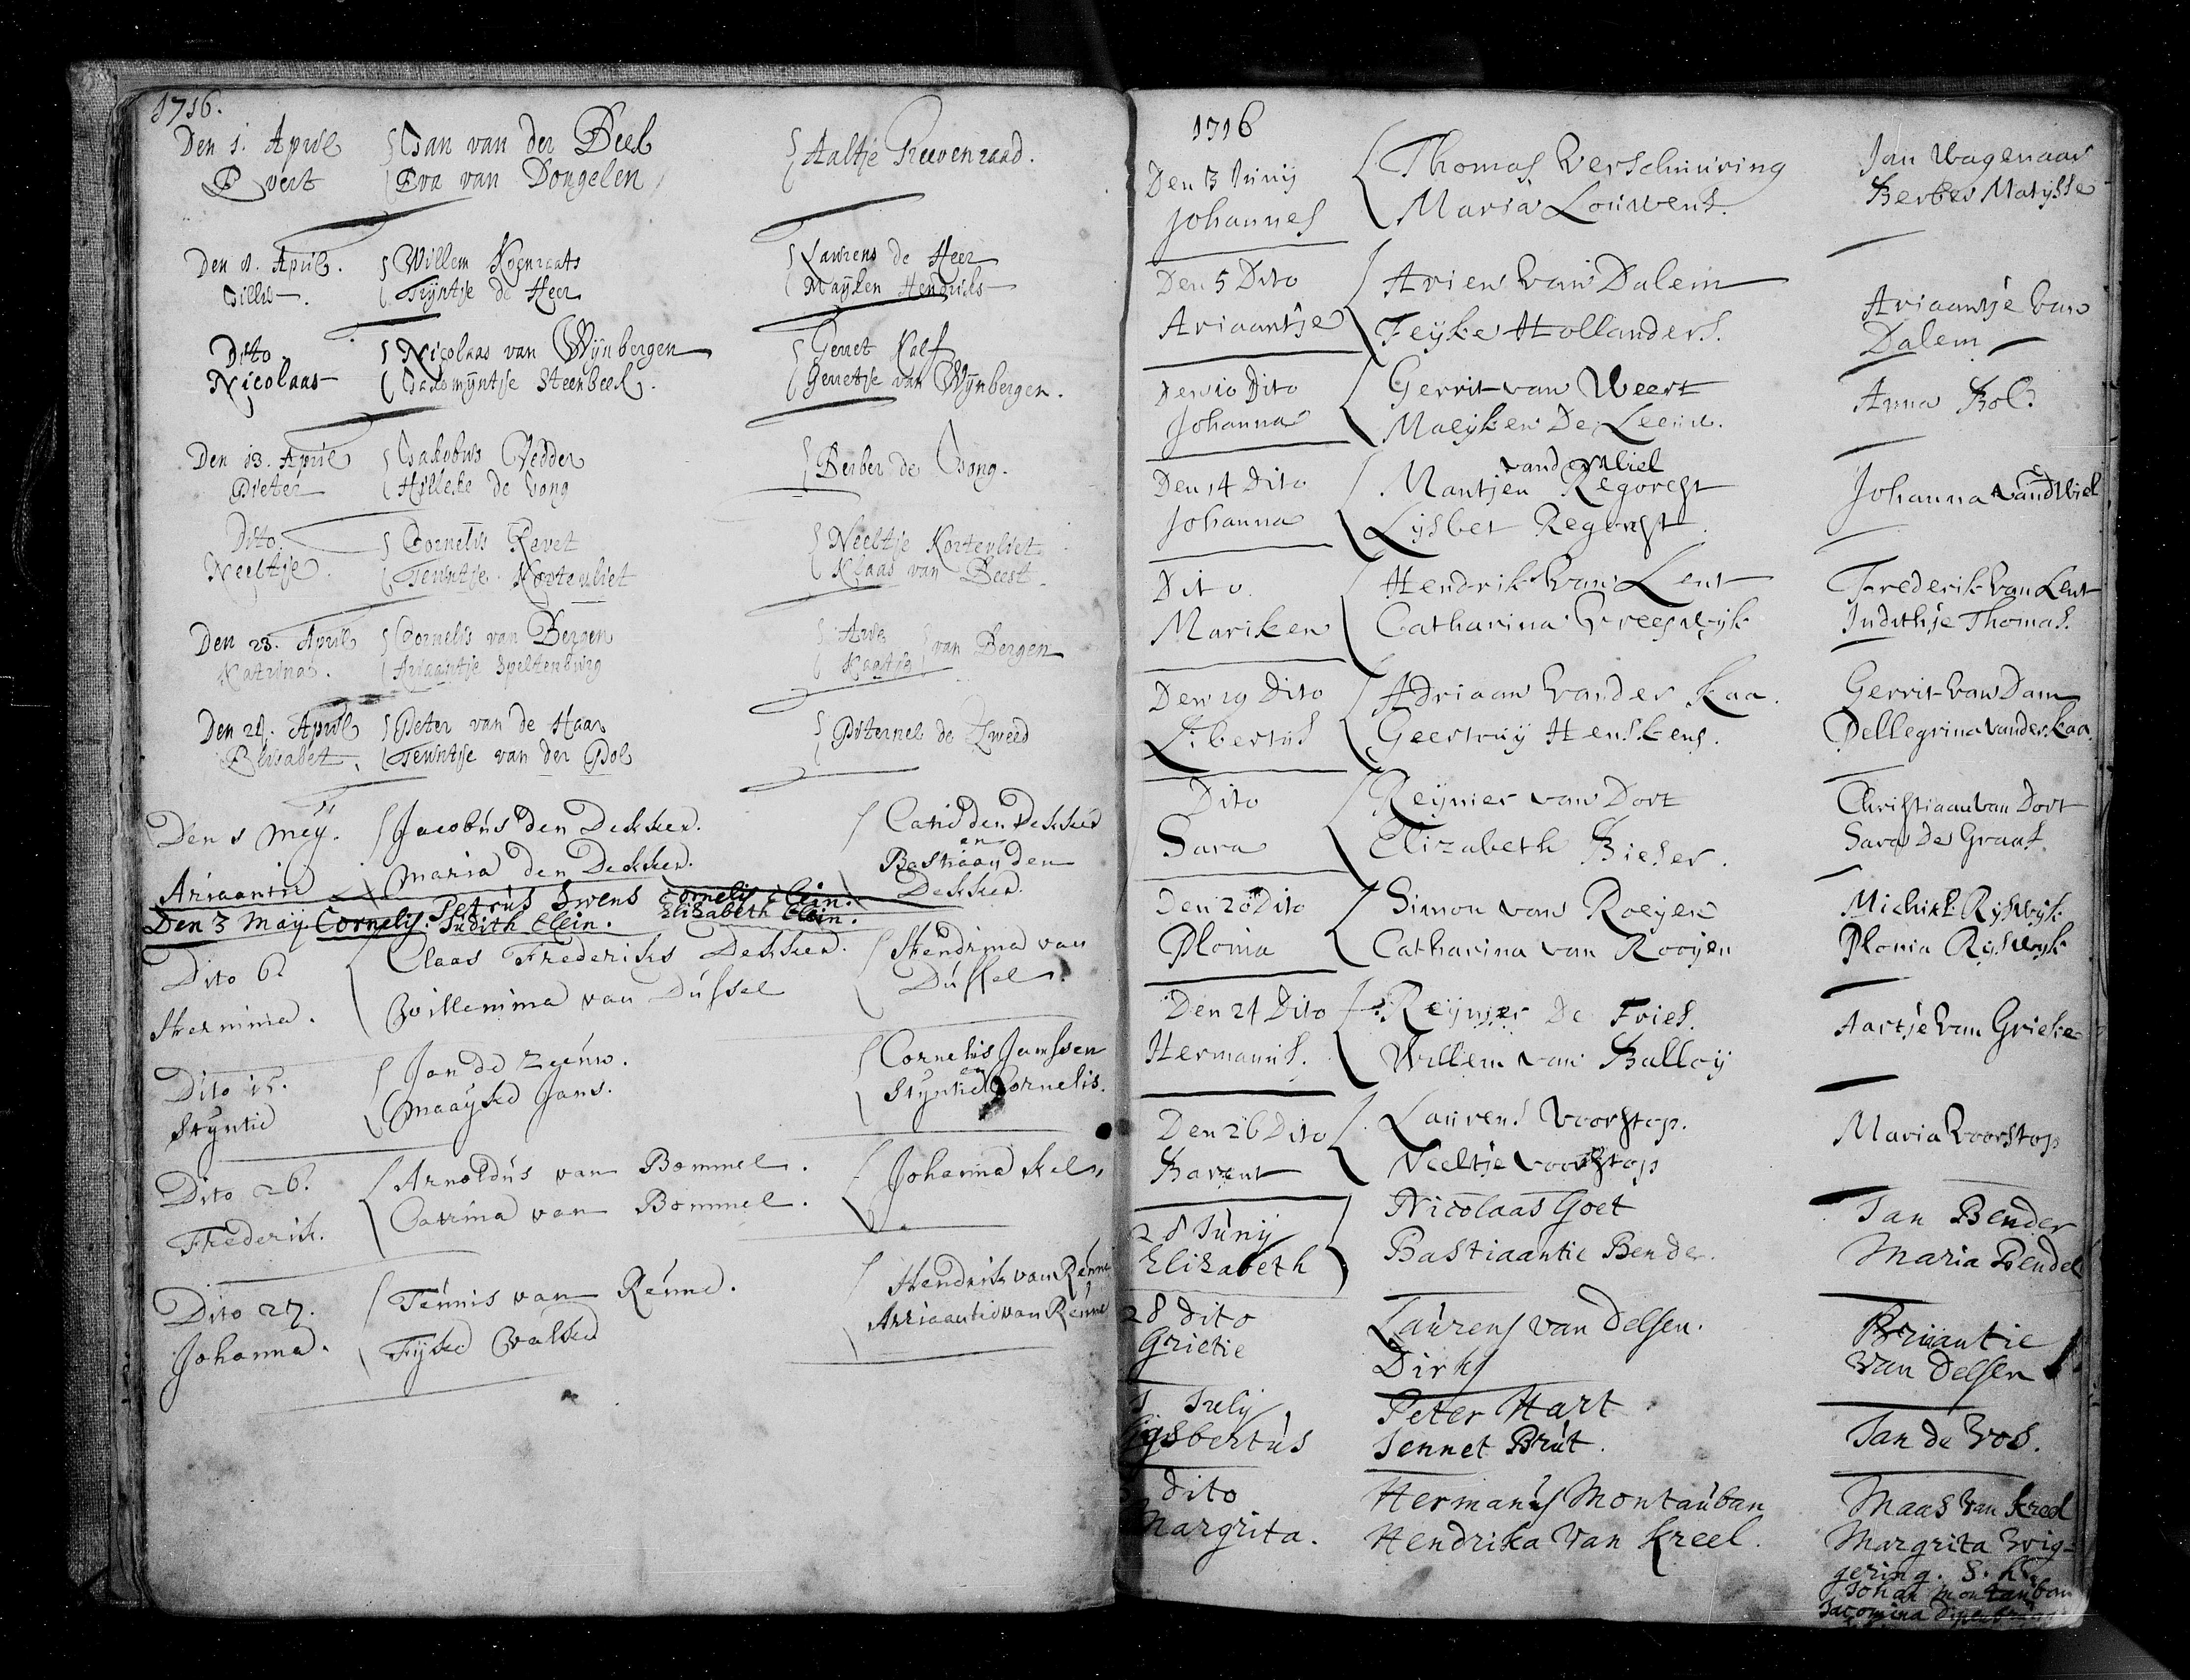 1716.
Den 1. April Jan van der Beek Aaltje Reevenraad.
Evert Eva van Dongelen
Den 8. April. Willem Koenraats Laurens de Heer
Trijntje de Heer Maijken Hendriks
Dito Nicolaas van Wijnbergen Gerret Kalf
Nicolaas Jakomijntje Steenbeek. Gerretje van Wijnbergen.
Den 13. April Jakobus Vedder Berber de Jong.
Pieter Hilleke de Jong
Dito. Cornelis Revet Neeltje Kortevliet
Neeltje. Teuntje Kortevliet Klaas van Beest.
Den 23. April Cornelis van Bergen van Bergen
Katrina. Ariaantje Speltenburg Kaatje
Den 28. April Peter van de Haar Piternel de Zweed
Elisabet. Teuntje van der Pol
Den 1 Meij. Jacobus den Dekker. den Dekker
en
Ariaantie Maria den Dekker. Bastiaan den
Dekker.
Den 3 Maij Cornelis. Petrus Swens Cornelis Clein.
Judith Clein. Elizabeth Clein.
Dito 6. Claas Frederiks Dekker. Hendrina van
Hermina. Willemina van Dussel Dussel.
Dito 15. Jan de Zeeuw. Cornelis Janssen
en
Styntie Maayke Jans. Styntie Cornelis.
Dito 26. Arnoldus van Bommel. Johanna
Frederik. Catrina van Bommel.
Dito 27. Teunis van Reune. Hendrik van Reune
Johanna. Fijke Valke Arriaantie van Reune
1716
Den 3 Junij Thomas Verschuuring Jan Wagenaar
Johannes Maria Louwens. Berber Matijsse
Den 5 Dito Arien van Dalem Ariaantje van
Ariaantje Feijke Hollanders. Dalem
Den 10 Dito Gerrit van Weert Anna Bol.
Johanna Maeijken De Leeuw.
van der Wiel
Den 14 Dito Mantjen Regorgst Johanna vandWiel
Johanna Lijsbet Regorgst.
Dito. Hendrik van Lent Frederik van Lent
Mariken Catharina Vreeswijk Judithje Thomas.
Den 19 Dito Adriaan van der Kaa. Gerrit van Dam
Libertus Geertruij Henskens. Pellegrina vander Kaa.
Dito Reijnier van Dort Christiaan van Dort
Sara Elizabeth Bieser. Sara De Graaf.
Den 20 Dito Simon van Roeijen Michiel Rijswijk
Plonia Catharina van Rooijen Plonia Rijswijk
Den 21 Dito Reijnier De Fries. Aartje van Grieke
Hermanus. Willem van Balloij
Den 26 Dito Laurens Voorstop. Maria Voorstop
Barent Neeltje Voorstop
28 Junij Nicolaas Goet Jan Bender
Elizabeth Bastiaantie Bender. Maria Bendel
28 dito Laurens van Delsen. Bruantie
Grietie Dirks van Delsen
1 July Peter Hart Jan de Vos.
Gysbertus Jennet Brut.
dito Hermanus Montauban Maas van Kreel
Margrita. Hendrika van Kreel. Margrita Wig-
gering.
Johan Montauban
Jacomina